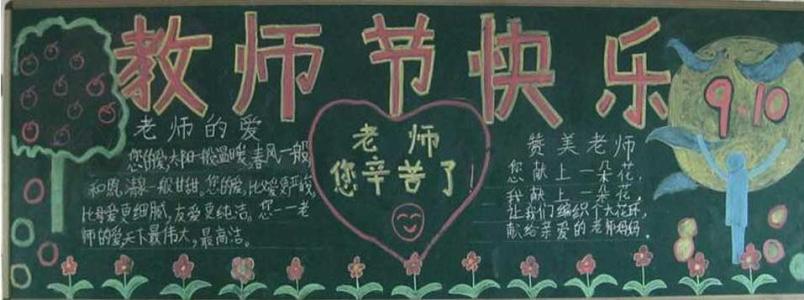 教师节快乐
9.10
老师的爱
您的爱,太阳一般温暖,春风一般
和煦,清泉一般甘甜。您的爱,比父爱更严峻,
比母爱更细腻,友爱更纯洁。您一一老
师的爱天下最伟大,最高洁。
老师
您辛苦了!
赞美老师
您献上一朵花,
我献上一朵花,
让我们编织个大花环,
献给亲爱的老师妈妈。